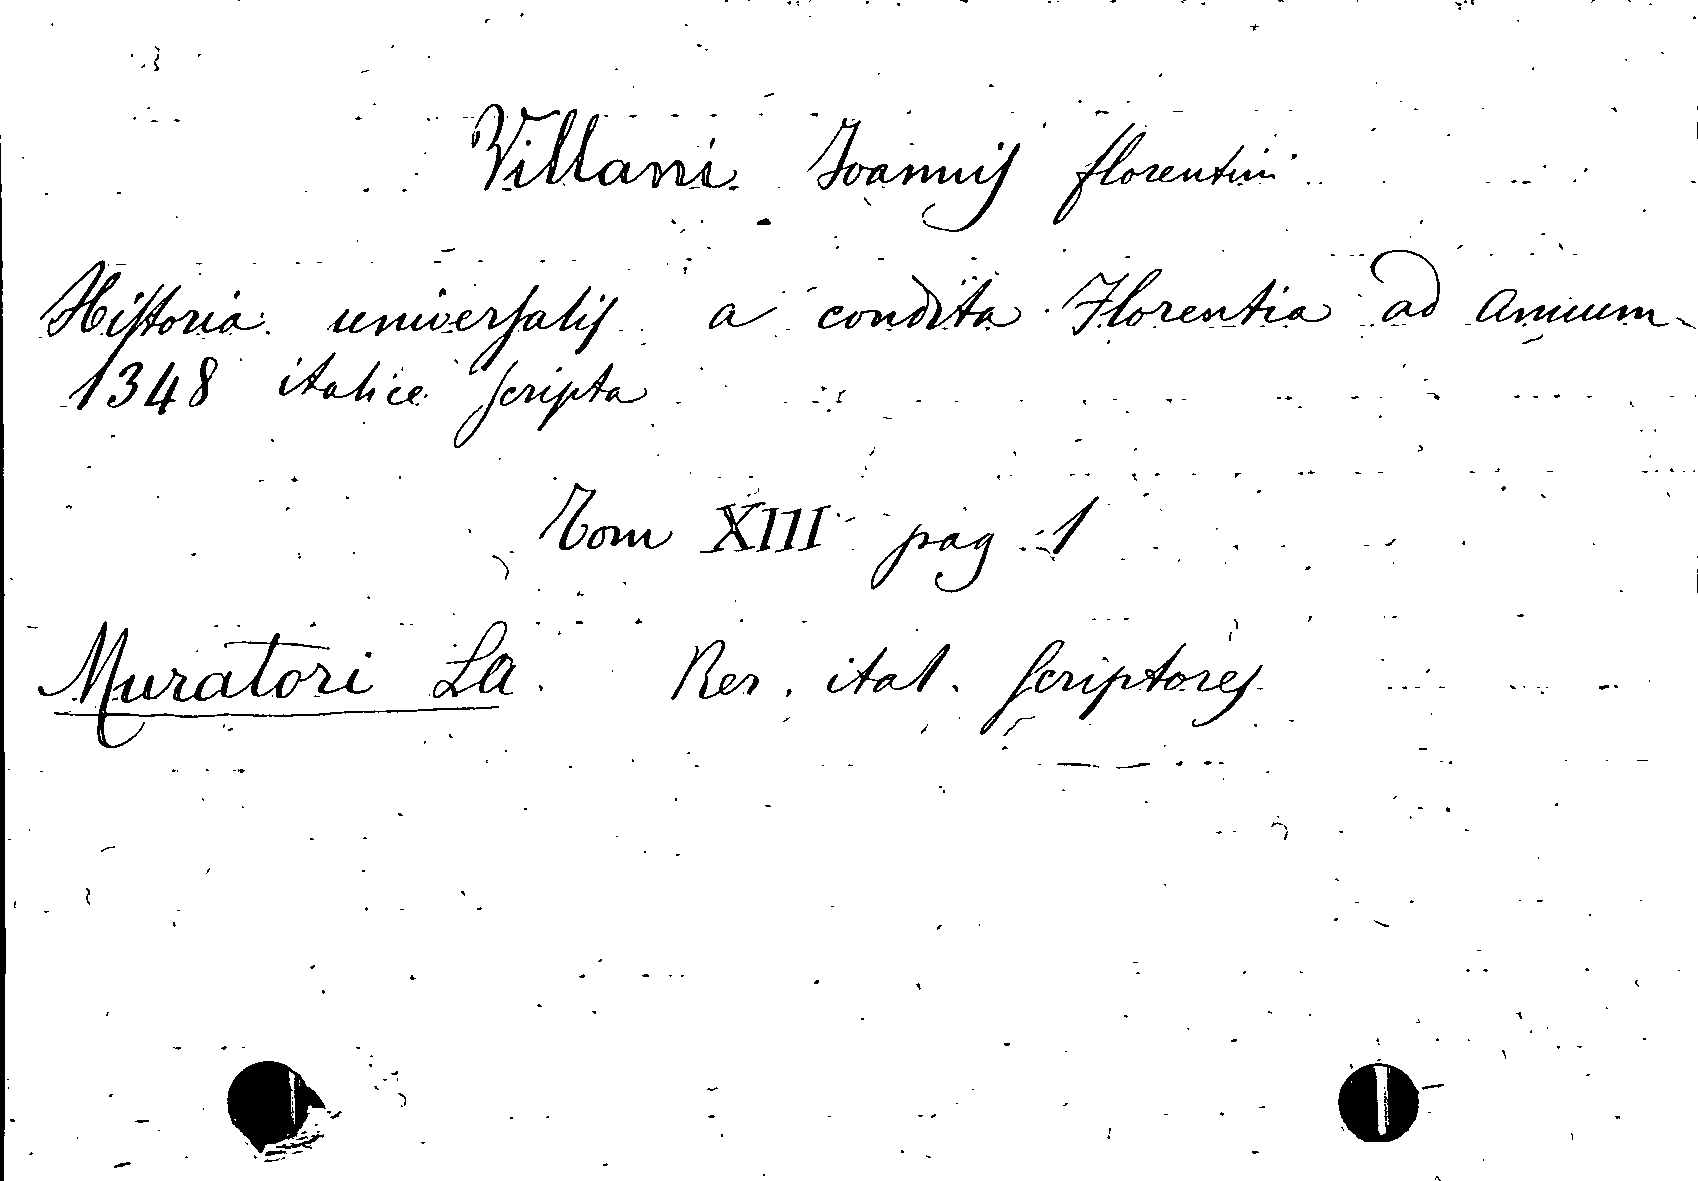 Villani Joannis florentini
Historia universalis a condita Florentia ad annum
1348 italice scripta
Tom XIII pag 1
Muratori La. Rer. ital. scriptores